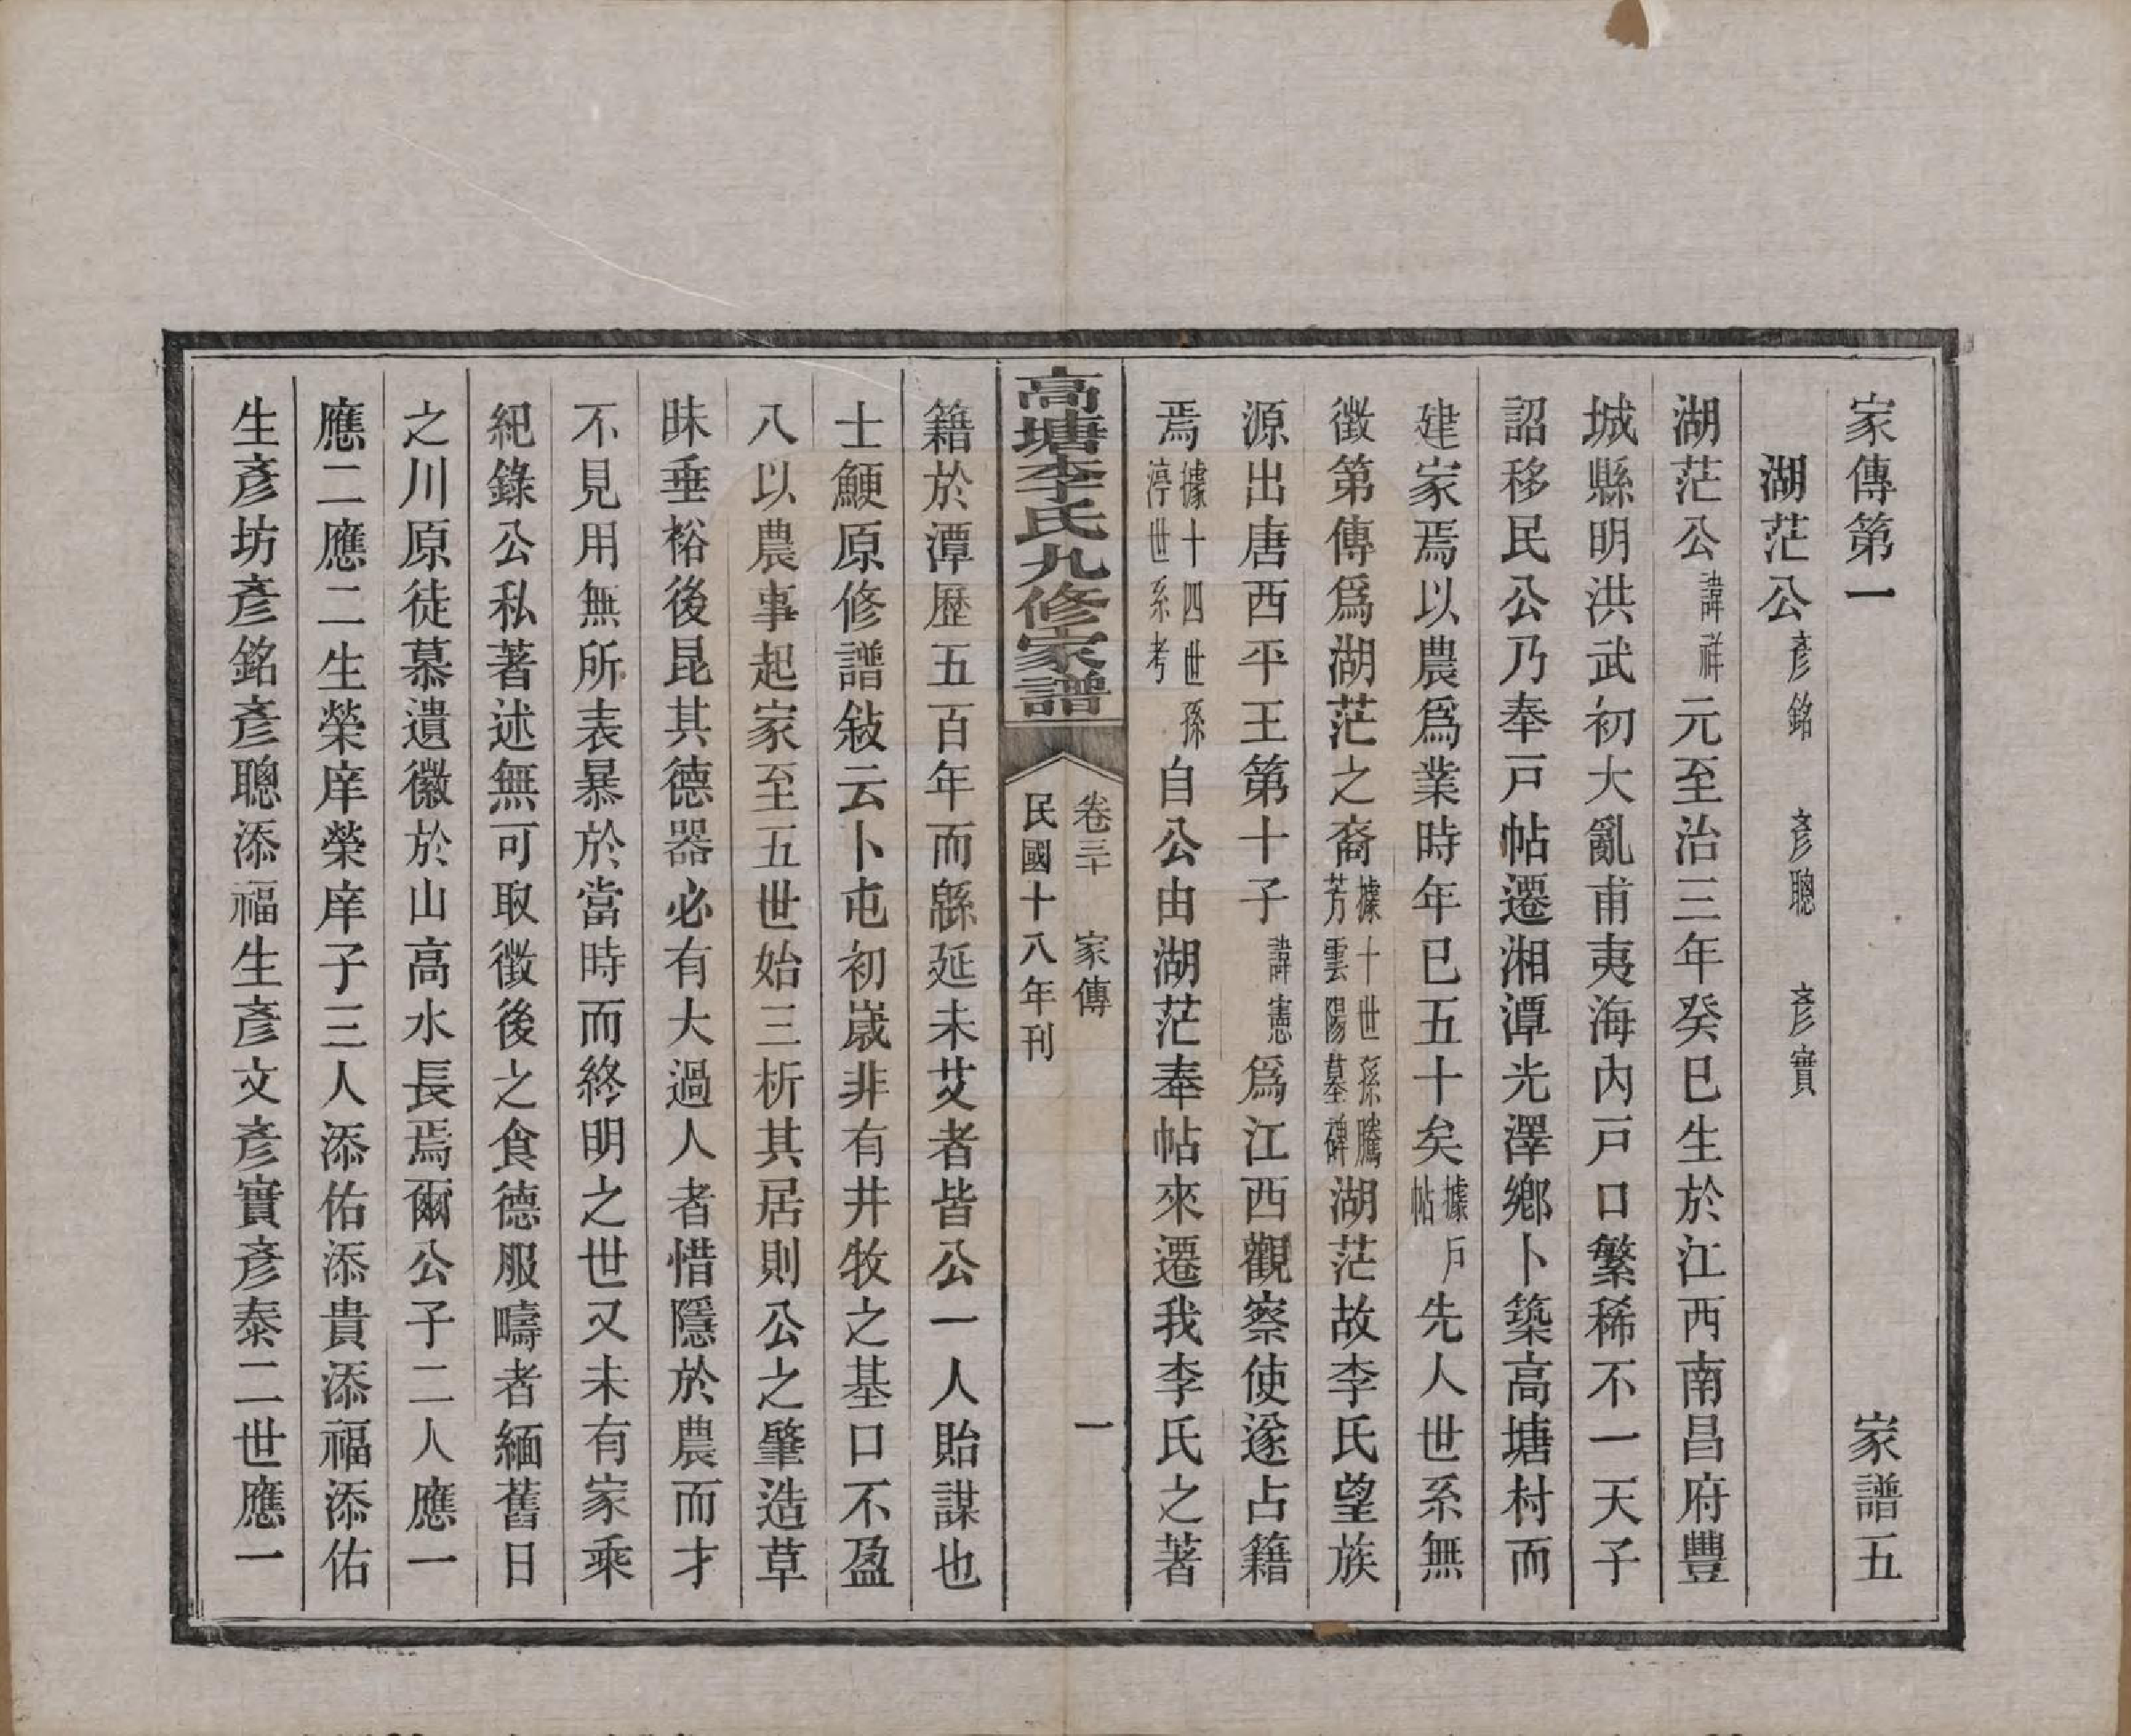 家傳第一　家譜五
湖茫公 彥銘 彥聰 彥實
湖茫公諱祥元至治三年癸巳生於江西南昌府豐
城縣明洪武初大亂甫夷海內戸口繁稀不一天子
詔移民公乃奉戸帖遷湘潭光澤鄉卜築高塘村而
建家焉以農爲業時年已五十矣據戸帖先人世系無
徵第傳爲湖茫之裔據十世孫騰芳雲陽墓碑湖茫故李氏望族
源出唐西平王第十子諱憲爲江西觀察使遂占籍
焉據十四世孫渟世系考自公由湖茫奉帖來遷我李氏之著
高塘李氏九修家譜
卷三十　家傳　一
民國十八年刊
籍於潭歷五百年而緜延未艾者皆公一人貽謀也
士鯁原修譜敍云卜屯初嵗非有井牧之基口不盈
八以農事起家至五世始三析其居則公之肇造草
昧垂裕後昆其德器必有大過人者惜隱於農而才
不見用無所表暴於當時而終明之世又未有家乘
紀錄公私著述無可取徵後之食德服疇者緬舊日
之川原徒慕遺徽於山高水長焉爾公子二人應一
應二應二生榮庠榮庠子三人添佑添貴添福添佑
生彥坊彥銘彥聰添福生彥文彥實彥泰二世應一